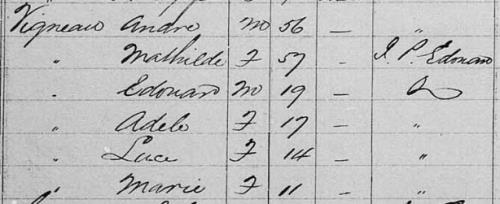 Vigneau Andre M 56 — "
" Mathilde F 57 — I. P. Edouard
" Edouard M 19 —
" Adele F 17 — "
" Luce F 14 — "
" Marie F 11 — "